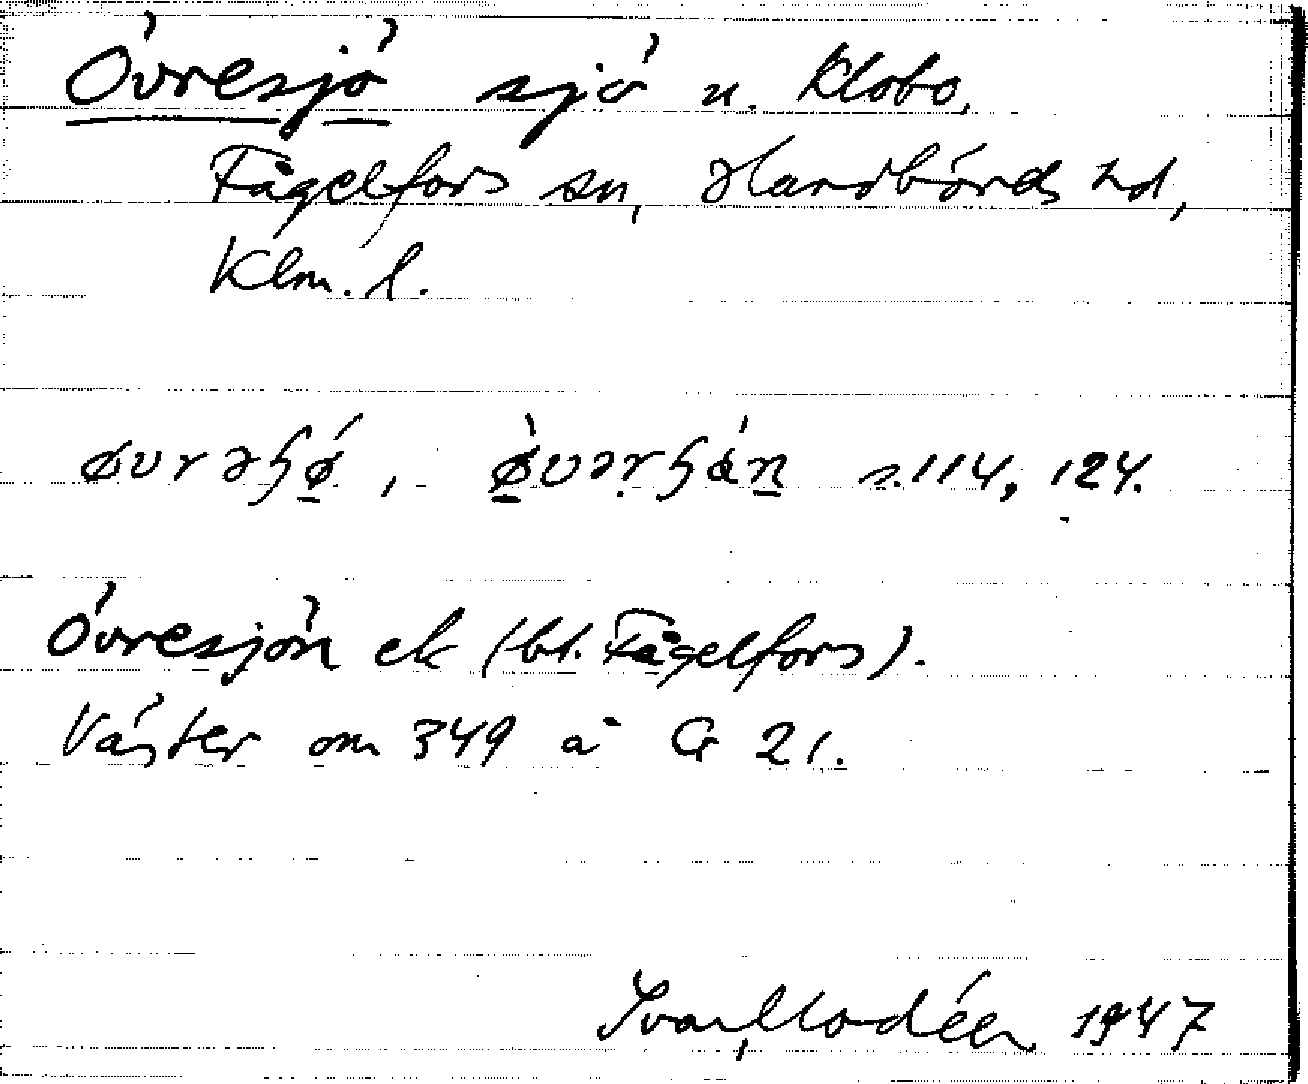 Övresjö sjö n. Klobo,
Fågelfors sn, Handbörds hd,
Klm. l.
s. 114, 124.
Övresjön ek (bl. Fågelfors).
Väster om 349 å G 21.
Ivar Modéer 1947